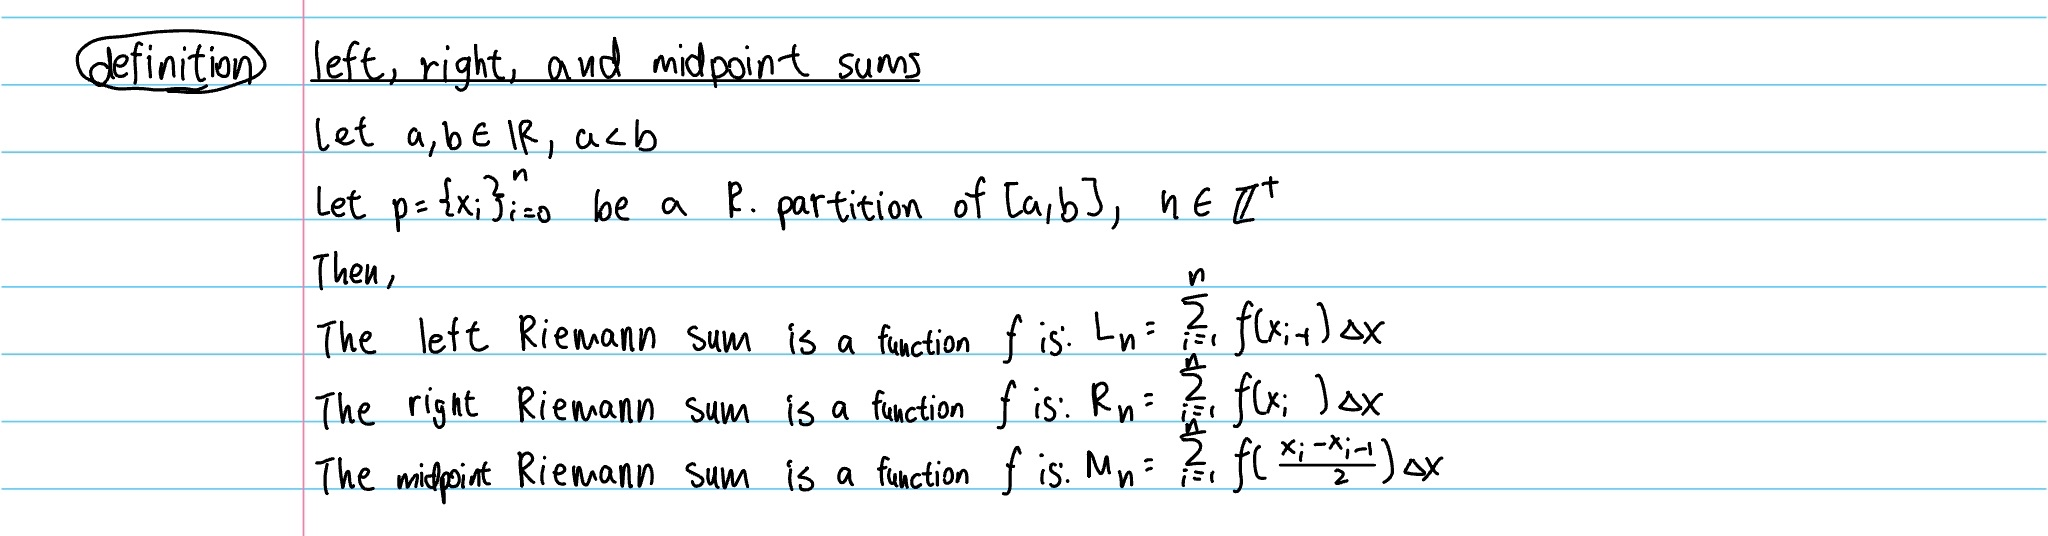 definition left, right, and midpoint sums
Let a,b ∈ ℝ, a<b
Let p = {x_i}_{i=0}^n be a R. partition of [a,b], n ∈ ℤ⁺
Then,
The left Riemann sum is a function f is: L_n = \sum_{i=1}^{n} f(x_{i-1}) Δx
The right Riemann sum is a function f is: R_n = \sum_{i=1}^{n} f(x_i) Δx
The midpoint Riemann sum is a function f is: M_n = \sum_{i=1}^{n} f(\frac{x_i - x_{i-1}}{2}) Δx